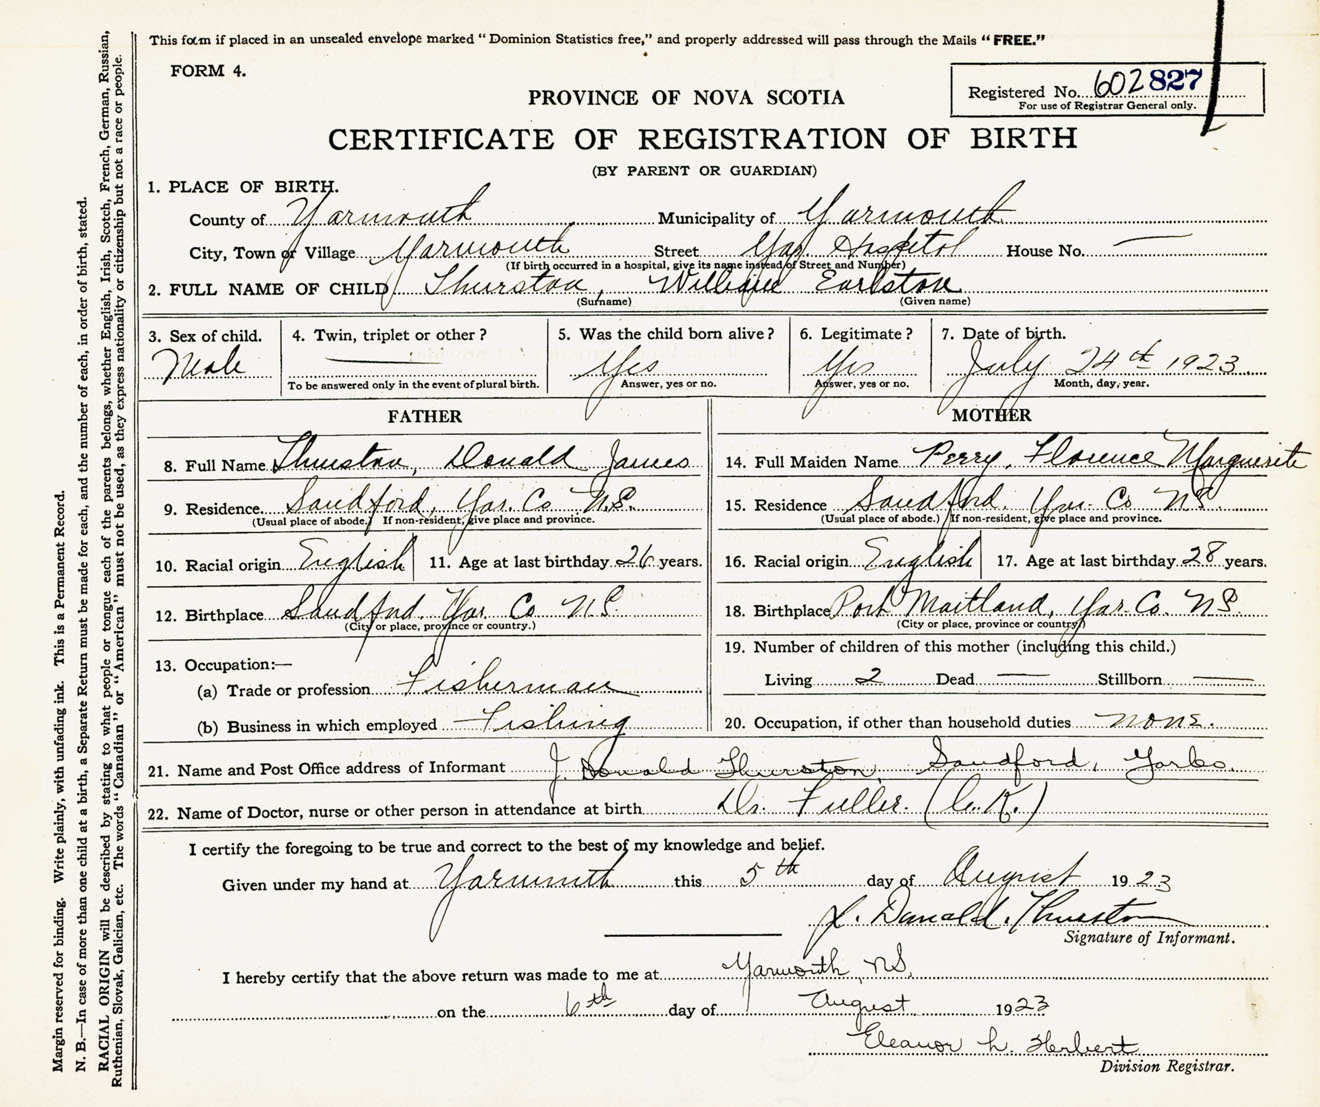 This form if placed in an unsealed envelope marked "Dominion Statistics free," and properly addressed will pass through the Mails "FREE."
FORM 4.
Registered No. 602827
For use of Registrar General only.
PROVINCE OF NOVA SCOTIA
CERTIFICATE OF REGISTRATION OF BIRTH
(BY PARENT OR GUARDIAN)
1. PLACE OF BIRTH.
County of Yarmouth Municipality of Yarmouth
City, Town or Village Yarmouth Street Yar. Hospital House No. —
(If birth occurred in a hospital, give its name instead of Street and Number)
2. FULL NAME OF CHILD Thurston, William Earlston
(Surname) (Given name)
3. Sex of child. Male
4. Twin, triplet or other? —
To be answered only in the event of plural birth.
5. Was the child born alive? Yes
Answer, yes or no.
6. Legitimate? Yes
Answer, yes or no.
7. Date of birth. July 24th 1923
Month, day, year.
FATHER
8. Full Name Thurston, Donald James
9. Residence. Sandford, Yar. Co N.S.
(Usual place of abode.) If non-resident, give place and province.
10. Racial origin English 11. Age at last birthday 26 years.
12. Birthplace Sandford Yar. Co. N.S.
(City or place, province or country.)
13. Occupation:—
(a) Trade or profession Fisherman
(b) Business in which employed Fishing
MOTHER
14. Full Maiden Name Perry, Florence Marguerite
15. Residence Sandford. Yar. Co N.S.
(Usual place of abode.) If non-resident, give place and province.
16. Racial origin English 17. Age at last birthday 28 years.
18. Birthplace Port Maitland, Yar. Co. N.S.
(City or place, province or country)
19. Number of children of this mother (including this child.)
Living 2 Dead — Stillborn —
20. Occupation, if other than household duties none.
21. Name and Post Office address of Informant J. Donald Thurston, Sandford, Yar Co.
22. Name of Doctor, nurse or other person in attendance at birth Dr. Fuller. (C.K.)
I certify the foregoing to be true and correct to the best of my knowledge and belief.
Given under my hand at Yarmouth this 5th day of August 1923
J. Donald. Thurston
Signature of Informant.
I hereby certify that the above return was made to me at Yarmouth, N.S.
on the 6th day of August 1923
Eleanor L. Herbert
Division Registrar.
Margin reserved for binding. Write plainly, with unfading ink. This is a Permanent Record.
N. B.—In case of more than one child at a birth, a Separate Return must be made for each, and the number of each, in order of birth, stated.
RACIAL ORIGIN will be described by stating to what people or tongue each of the parents belongs, whether English, Irish, Scotch, French, German, Russian,
Ruthenian, Slovak, Galician, etc. The words "Canadian" or "American" must not be used, as they express nationality or citizenship but not a race or people.